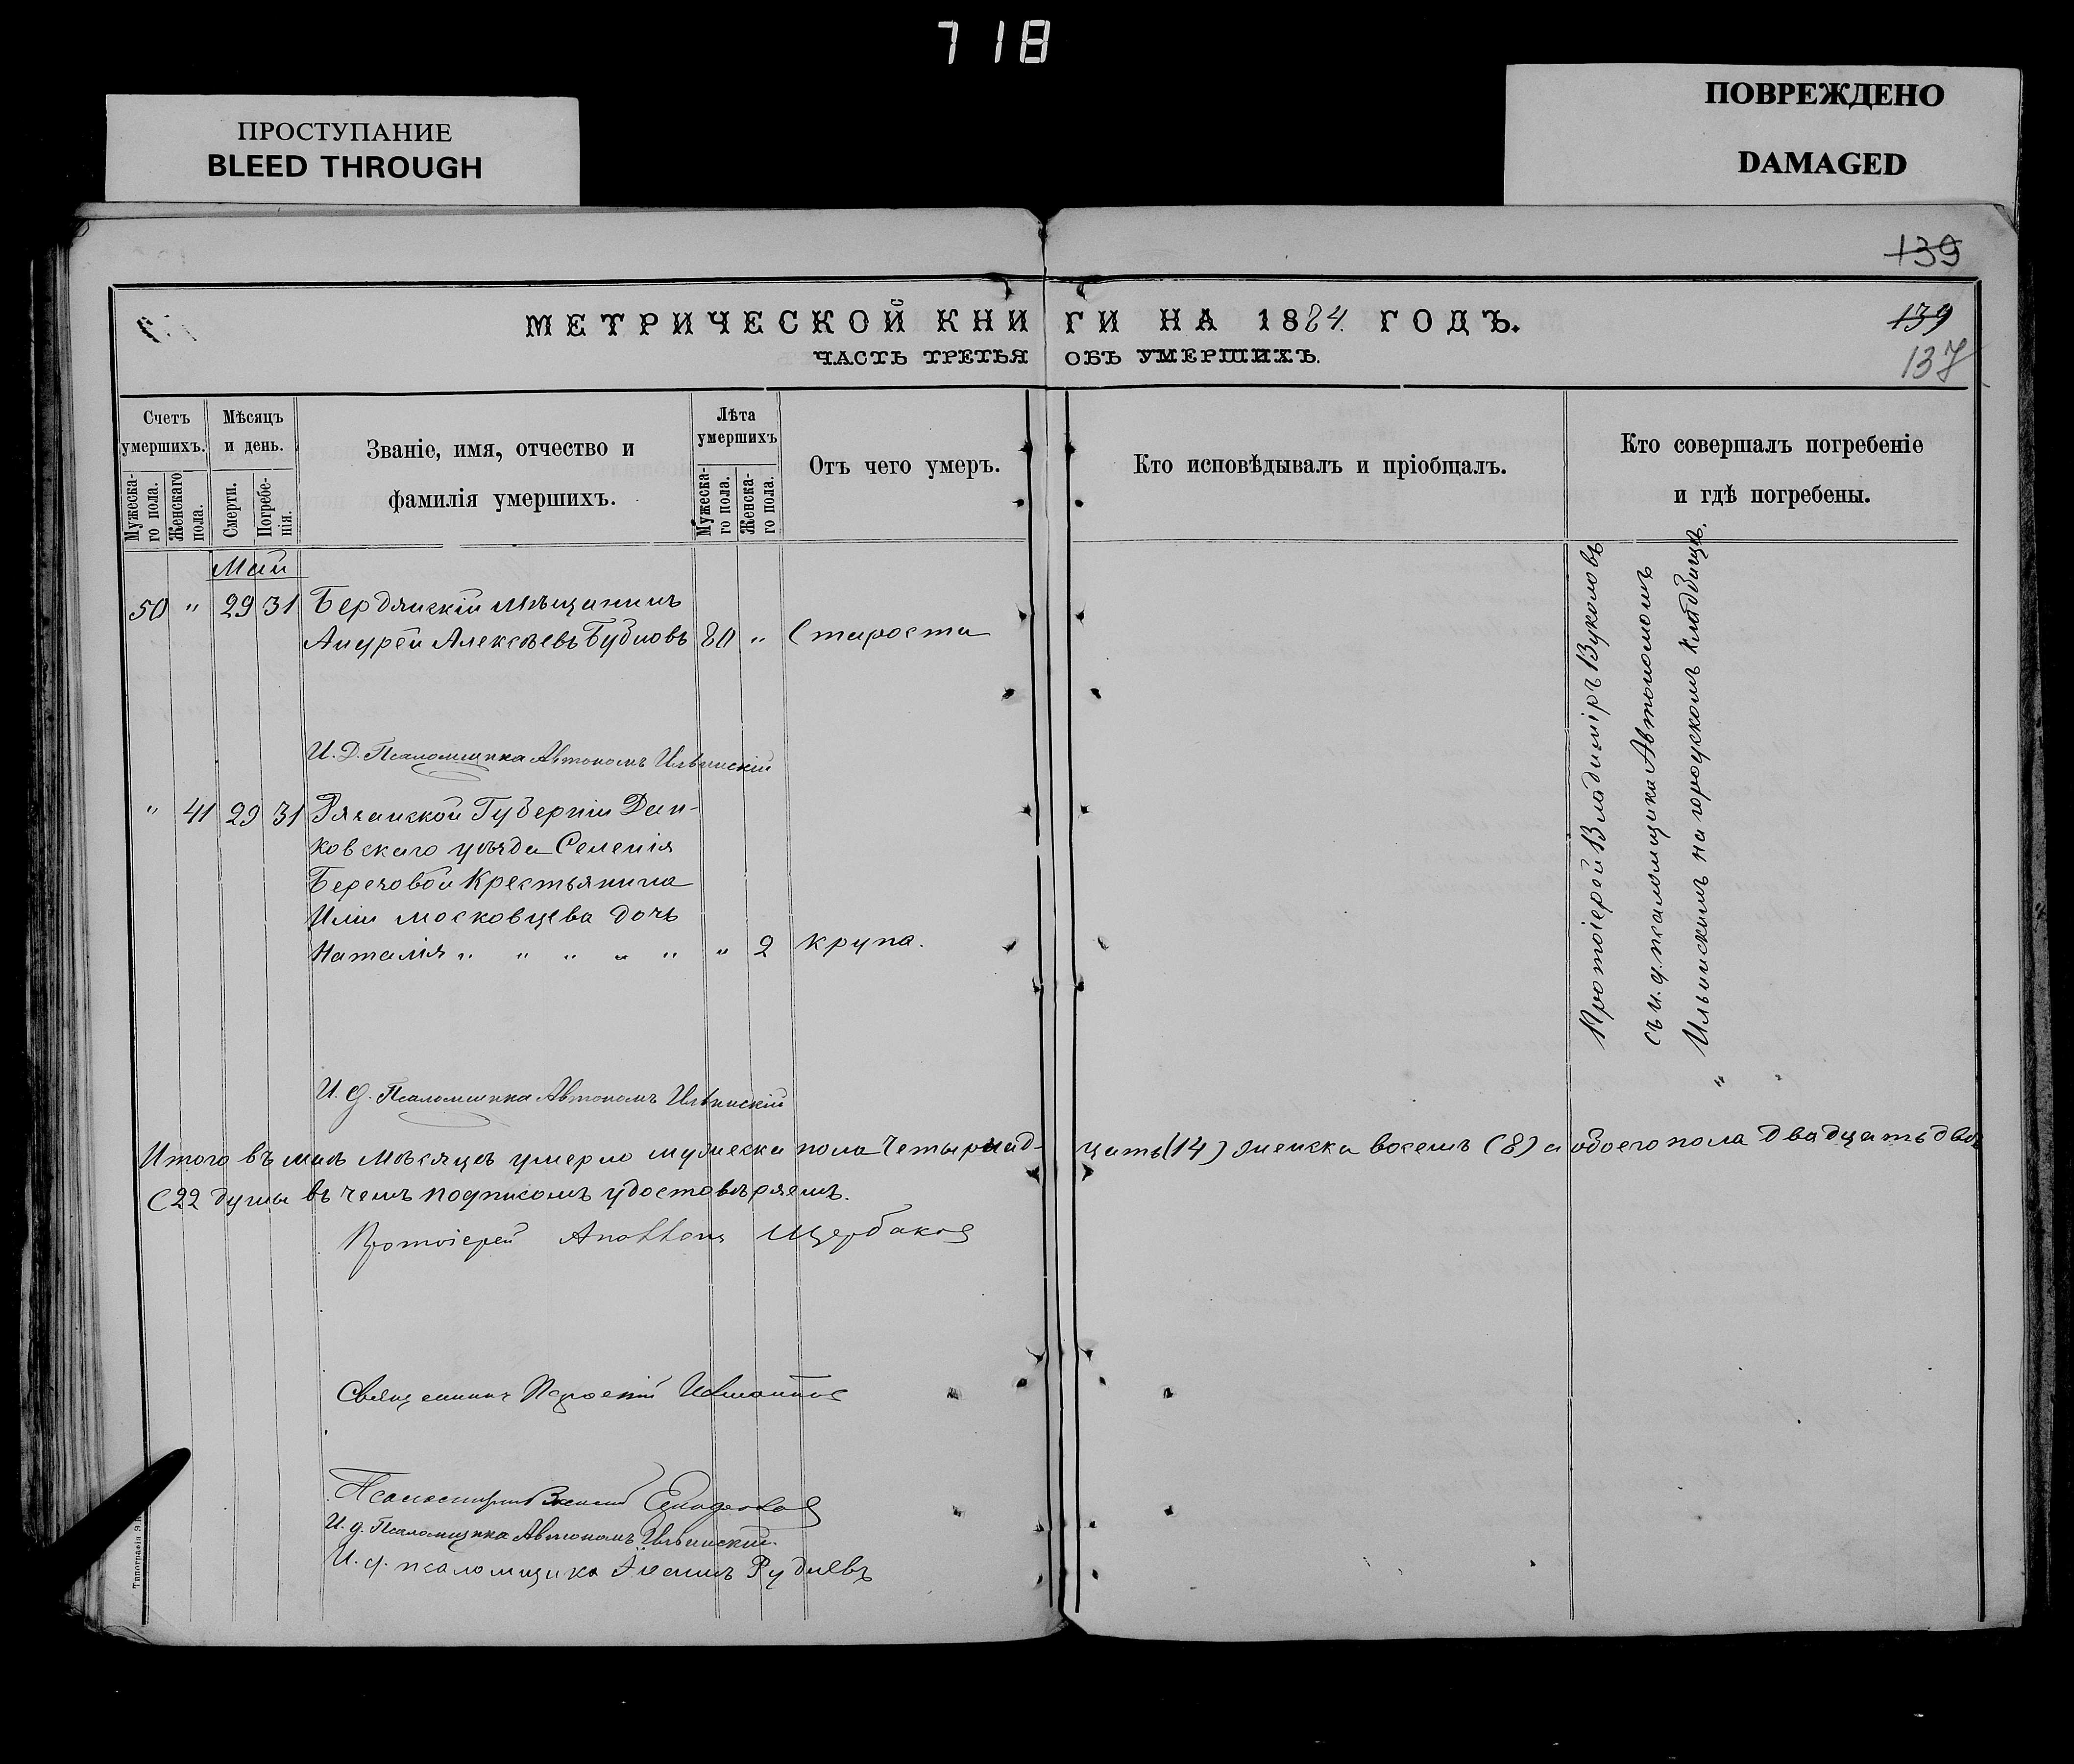 718
ПРОСТУПАНИЕ
BLEED THROUGH
ПОВРЕЖДЕНО
DAMAGED
139
МЕТРИЧЕСКОЙ КНИГИ НА 1884 ГОДЪ.
139
ЧАСТЬ ТРЕТЬЯ ОБЪ УМЕРШИХЪ.
137
Счетъ умершихъ.
Мужескаго пола.
Женскаго пола.
Мѣсяцъ и день.
Смерти.
Погребенія.
Званіе, имя, отчество и
фамилія умершихъ.
Лѣта умершихъ
Мужескаго пола.
Женскаго пола.
Отъ чего умеръ.
Кто исповѣдывалъ и пріобщалъ.
Кто совершалъ погребеніе
и гдѣ погребены.
Май
50 " 29 31 Бердянскій мѣщанинъ
Андрей Алексѣевъ Бубновъ 80 " Старости
И. Д. Псаломщика Автономъ Ильинскій
" 41 29 31 Рязанской Губерніи Дан-
ковскаго уѣзда Селенія
Березовой Крестьянина
Иліи Московцева дочь
Наталія " " " " " " 2 крупа.
И. Д. Псаломщика Автономъ Ильинскій
Протоіерей Владиміръ Вуколовъ
съ и. д. псаломщика Автономомъ
Ильинскимъ на городскомъ кладбищѣ.
Итого въ маѣ мѣсяцѣ умерло мужеска пола Четырнад- цать (14) женска восемь (8) а обоего пола двадцать двѣ
(22 души въ чемъ подписомъ удостовѣряемъ.
Протоіерей Аполлонъ Щербаков
Священникъ
И. д. Псаломщика Автономъ Ильинскій.
И. д. псаломщика Рудневъ
Типографія